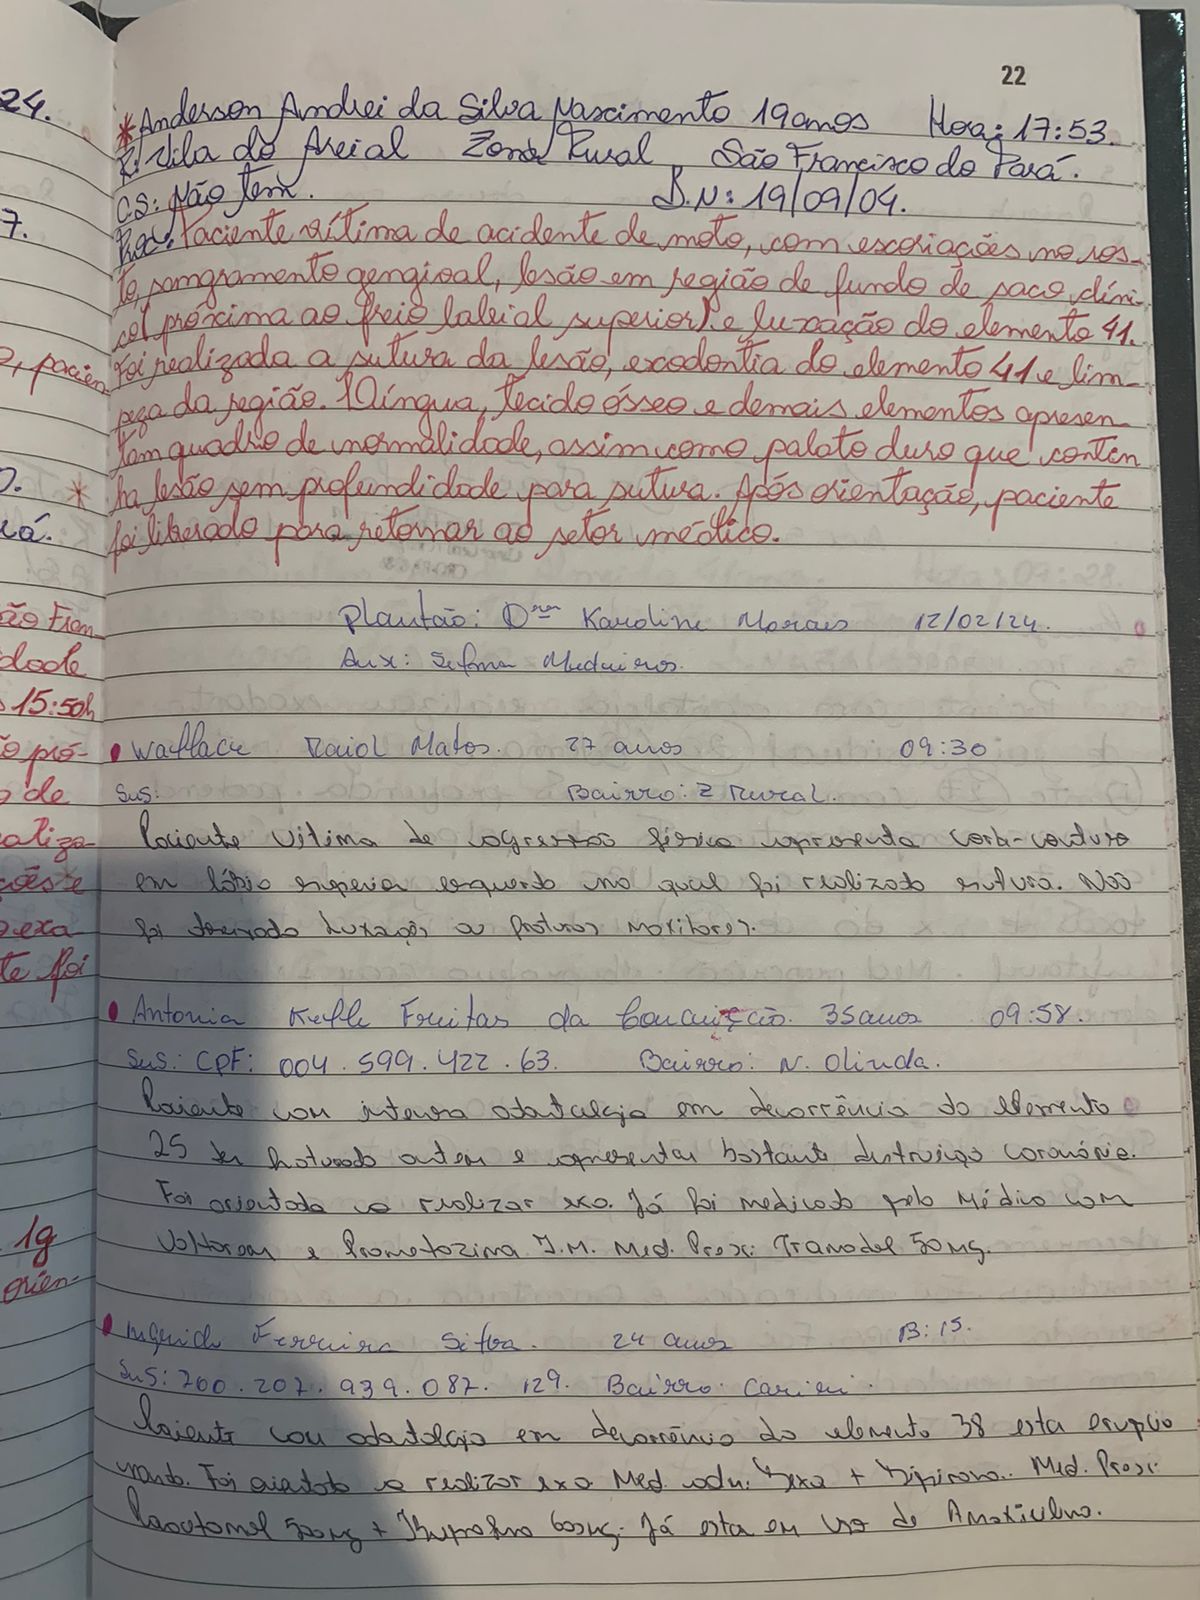 22
24.
*Anderson Andrei da Silva Nascimento 19 anos Hora: 17:53.
R: Vila do Areial Zona Rural São Francisco do Pará.
CS: Não tem. D.N: 19/09/04.
7.
Paciente vítima de acidente de moto, com escoriações no ros-
to, sangramento gengival, lesão em região de fundo de saco
próxima ao freio labial superior) e luxação do elemento 41.
o, pacien
Foi realizada a sutura da lesão, exodontia do elemento 41 e lim-
peza da região. Língua, tecido ósseo e demais elementos apresen-
tam quadro de normalidade, assim como palato duro que contin
ha lesão sem profundidade para sutura. Após orientação, paciente
foi liberado para retornar ao setor médico.
Plantão: Dra Karoline Morais 12/02/24.
Aux: Selma Medeiros.
ão Fran
dade
15:50h
o pró-
o de
aliza-
ções e
o exa
te foi
1g
orien-
Wallace Raiol Matos. 27 anos 09:30
Sus: Bairro: Z Rural.
Paciente vitima de agressão física apresenta corto-contuso
em lábio superior esquerdo no qual foi realizado sutura. Não
foi luxação ou fraturas maxilares.
Antonia Kelle Freitas da Conceição. 35 anos 09:58.
Sus: CPF: 004.599.422.63. Bairro: N. Olinda.
Paciente com intensa odontalgia em decorrência do elemento
25 ter fraturado ontem e apresentar bastante destruição coronária.
Foi orientada a realizar exo. Já foi medicado pelo médico com
Voltaren e Prometazina I.M. Med. Presc: Tramadol 50mg.
Ingrid Ferreira Silva. 24 anos 13:15.
Sus: 700.207.939.087.129. Bairro: Cariri.
Paciente com odontalgia em decorrência do elemento 38 esta erupcio
nando. Foi orientado a realizar exo. Med. adm: Dexa + Dipirona. Med. Presc:
Paracetamol 500mg + Ibuprofeno 600mg. Já esta em uso de Amoxicilina.